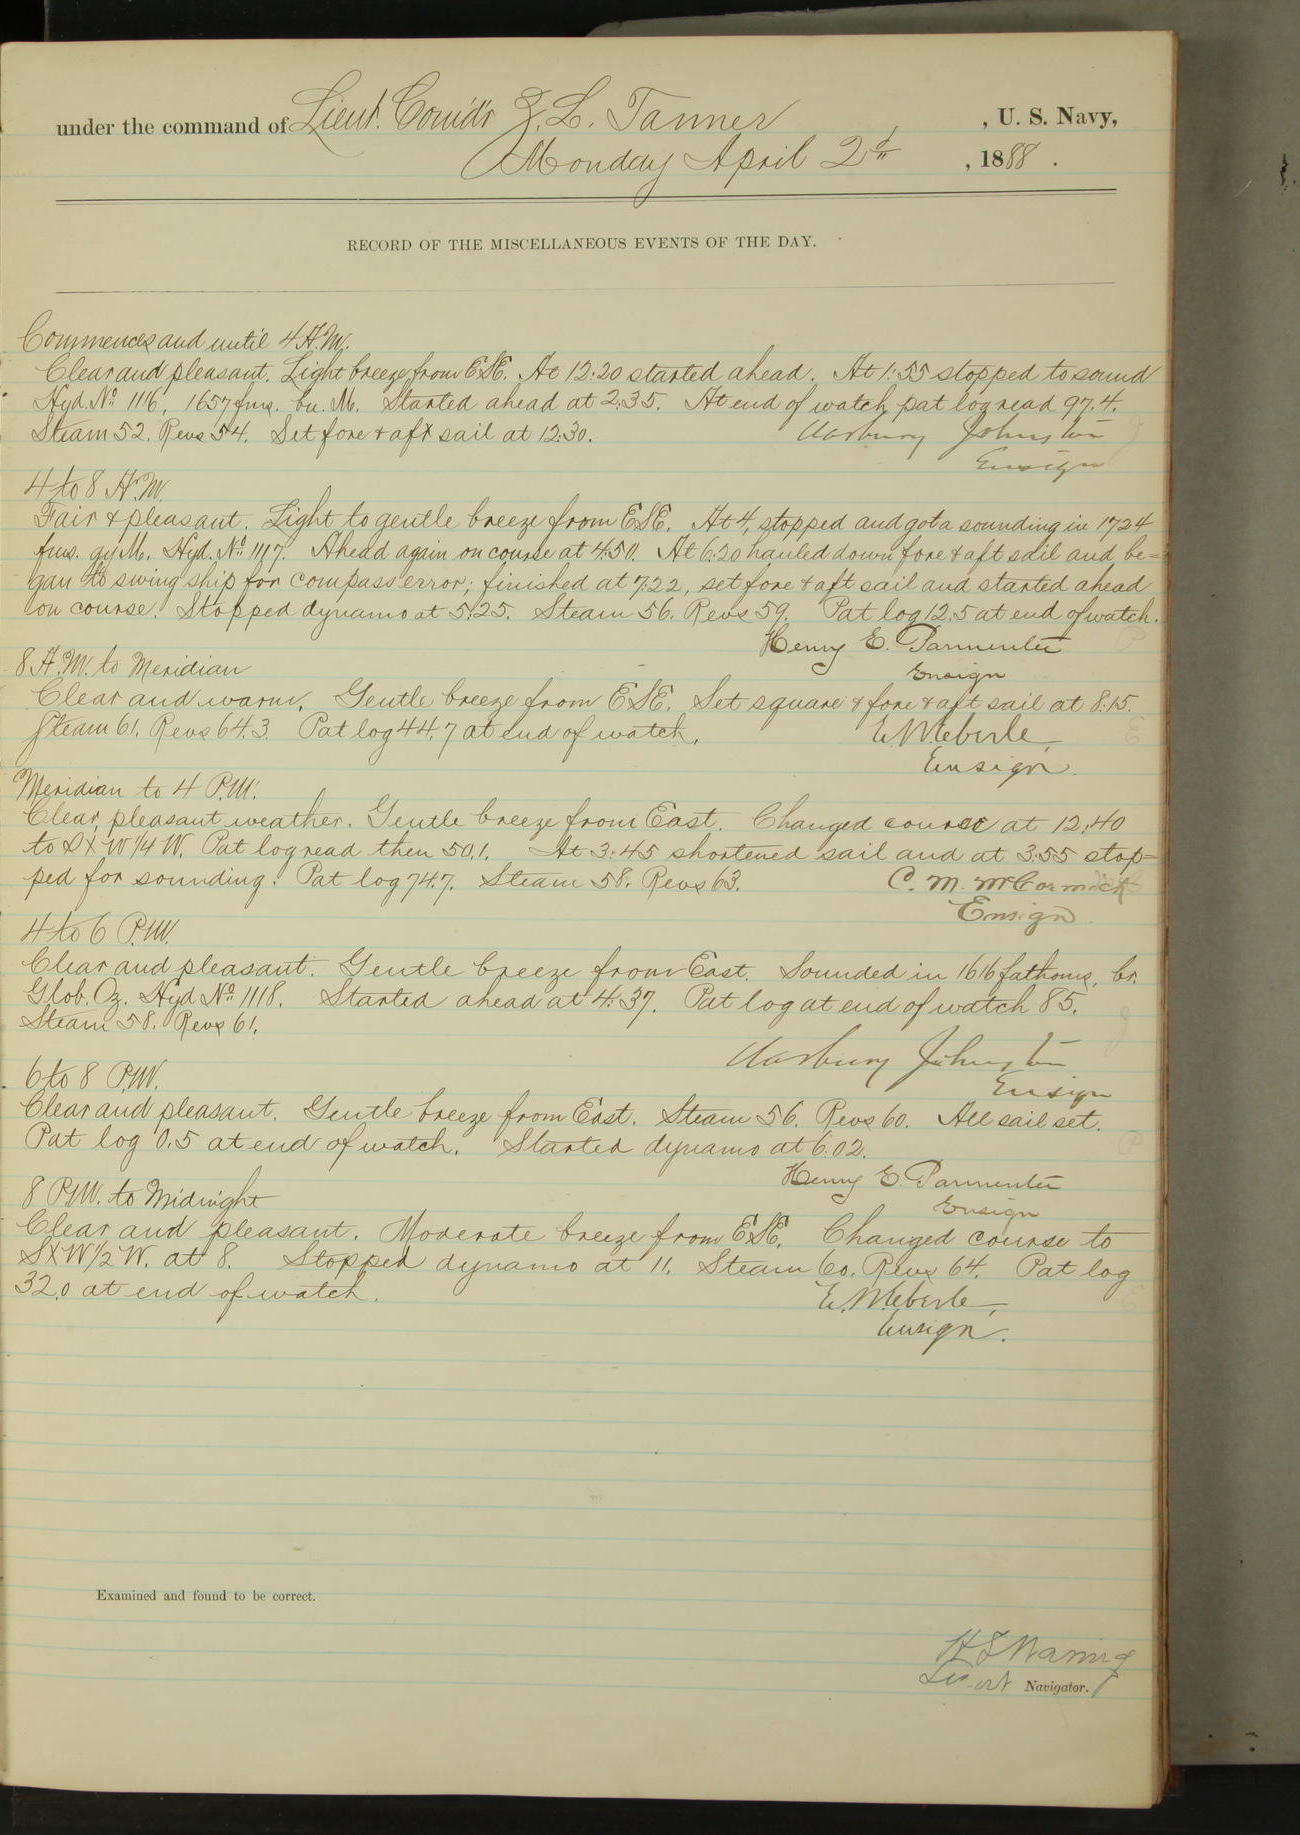 under the command of Lieut. Comd'r Z. L. Tanner, U. S. Navy,
Monday April 2d, 1888.
RECORD OF THE MISCELLANEOUS EVENTS OF THE DAY.
Commences and until 4 A.M.
Clear and pleasant. Light breeze from ESE. At 12:20 started ahead. At 1:55 stopped to sound
Hyd. No. 1116, 1657 fms. bu. M. Started ahead at 2:35. At end of watch pat log read 97.4.
Steam 52. Revs 54. Set fore & aft sail at 12:30. Marbury Johnston
Ensign
4 to 8 A.M.
Fair & pleasant. Light to gentle breeze from ESE. At 4, stopped and got a sounding in 1724
fms. gy M. Hyd. No. 1117. Ahead again on course at 4:50. At 6:20 hauled down fore & aft sail and be=
gan to swing ship for compass error; finished at 7:22, set fore & aft sail and started ahead
on course. Stopped dynamo at 5:25. Steam 56. Revs 59. Pat log 12.5 at end of watch.
Henry E. Parmenter
Ensign
8 A.M. to Meridian
Clear and warm. Gentle breeze from ESE. Set square & fore & aft sail at 8:15.
Steam 61. Revs 64.3. Pat log 44.7 at end of watch. E. W. Eberle,
Ensign.
Meridian to 4 P.M.
Clear, pleasant weather. Gentle breeze from East. Changed course at 12:40
to SxW 1/4 W. Pat log read then 50.1. At 3:45 shortened sail and at 3:55 stop=
ped for sounding. Pat log 74.7. Steam 58. Revs 63. C. M. McCormick
Ensign.
4 to 6 P.M.
Clear and pleasant. Gentle breeze from East. Sounded in 1616 fathoms, br.
Glob. Oz. Hyd No. 1118. Started ahead at 4:37. Pat log at end of watch 85.
Steam 58. Revs 61.
Marbury Johnston
Ensign
6 to 8 P.M.
Clear and pleasant. Gentle breeze from East. Steam 56. Revs 60. All sail set.
Pat log 0.5 at end of watch. Started dynamo at 6.02.
Henry E. Parmenter
Ensign
8 P.M. to Midnight
Clear and pleasant. Moderate breeze from ESE. Changed course to
SxW 1/2 W. at 8. Stopped dynamo at 11. Steam 60. Revs 64. Pat log
32.0 at end of watch. E. W. Eberle,
Ensign.
Examined and found to be correct.
H S Waring
Lieut Navigator.